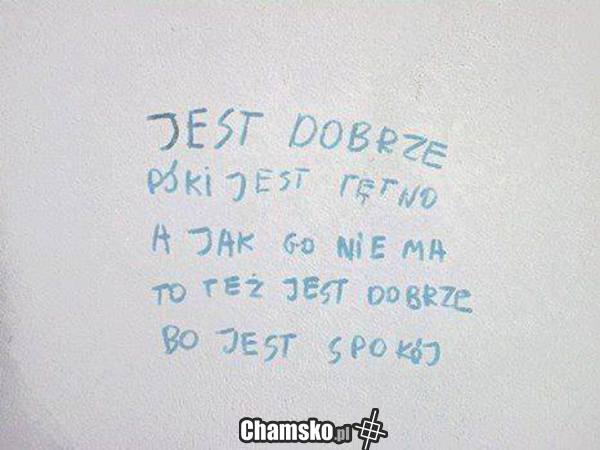 JEST DOBRZE
PÓKI JEST TĘTNO
A JAK GO NIE MA
TO TEŻ JEST DOBRZE
BO JEST SPOKÓJ
Chamsko.pl